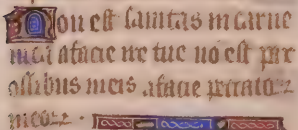 Non est sanitas in carne
mea a facie ire tue nō est pax
ossibus meis a facie peccatoꝝ
meoꝝ .